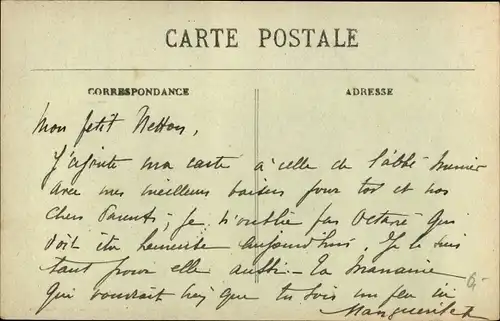 CARTE POSTALE
CORRESPONDANCE
ADRESSE
Mon petit
J'ajoute ma carte à celle de l'abbé
avec mes meilleurs baisers pour toi et nos
chers Parents; je n'oublie pas Octavie qui
doit être heureuse aujourd'hui. Je le suis
tant pour elle aussi - Ta marraine
qui voudrait bien que tu sois un peu ici
Marguerite